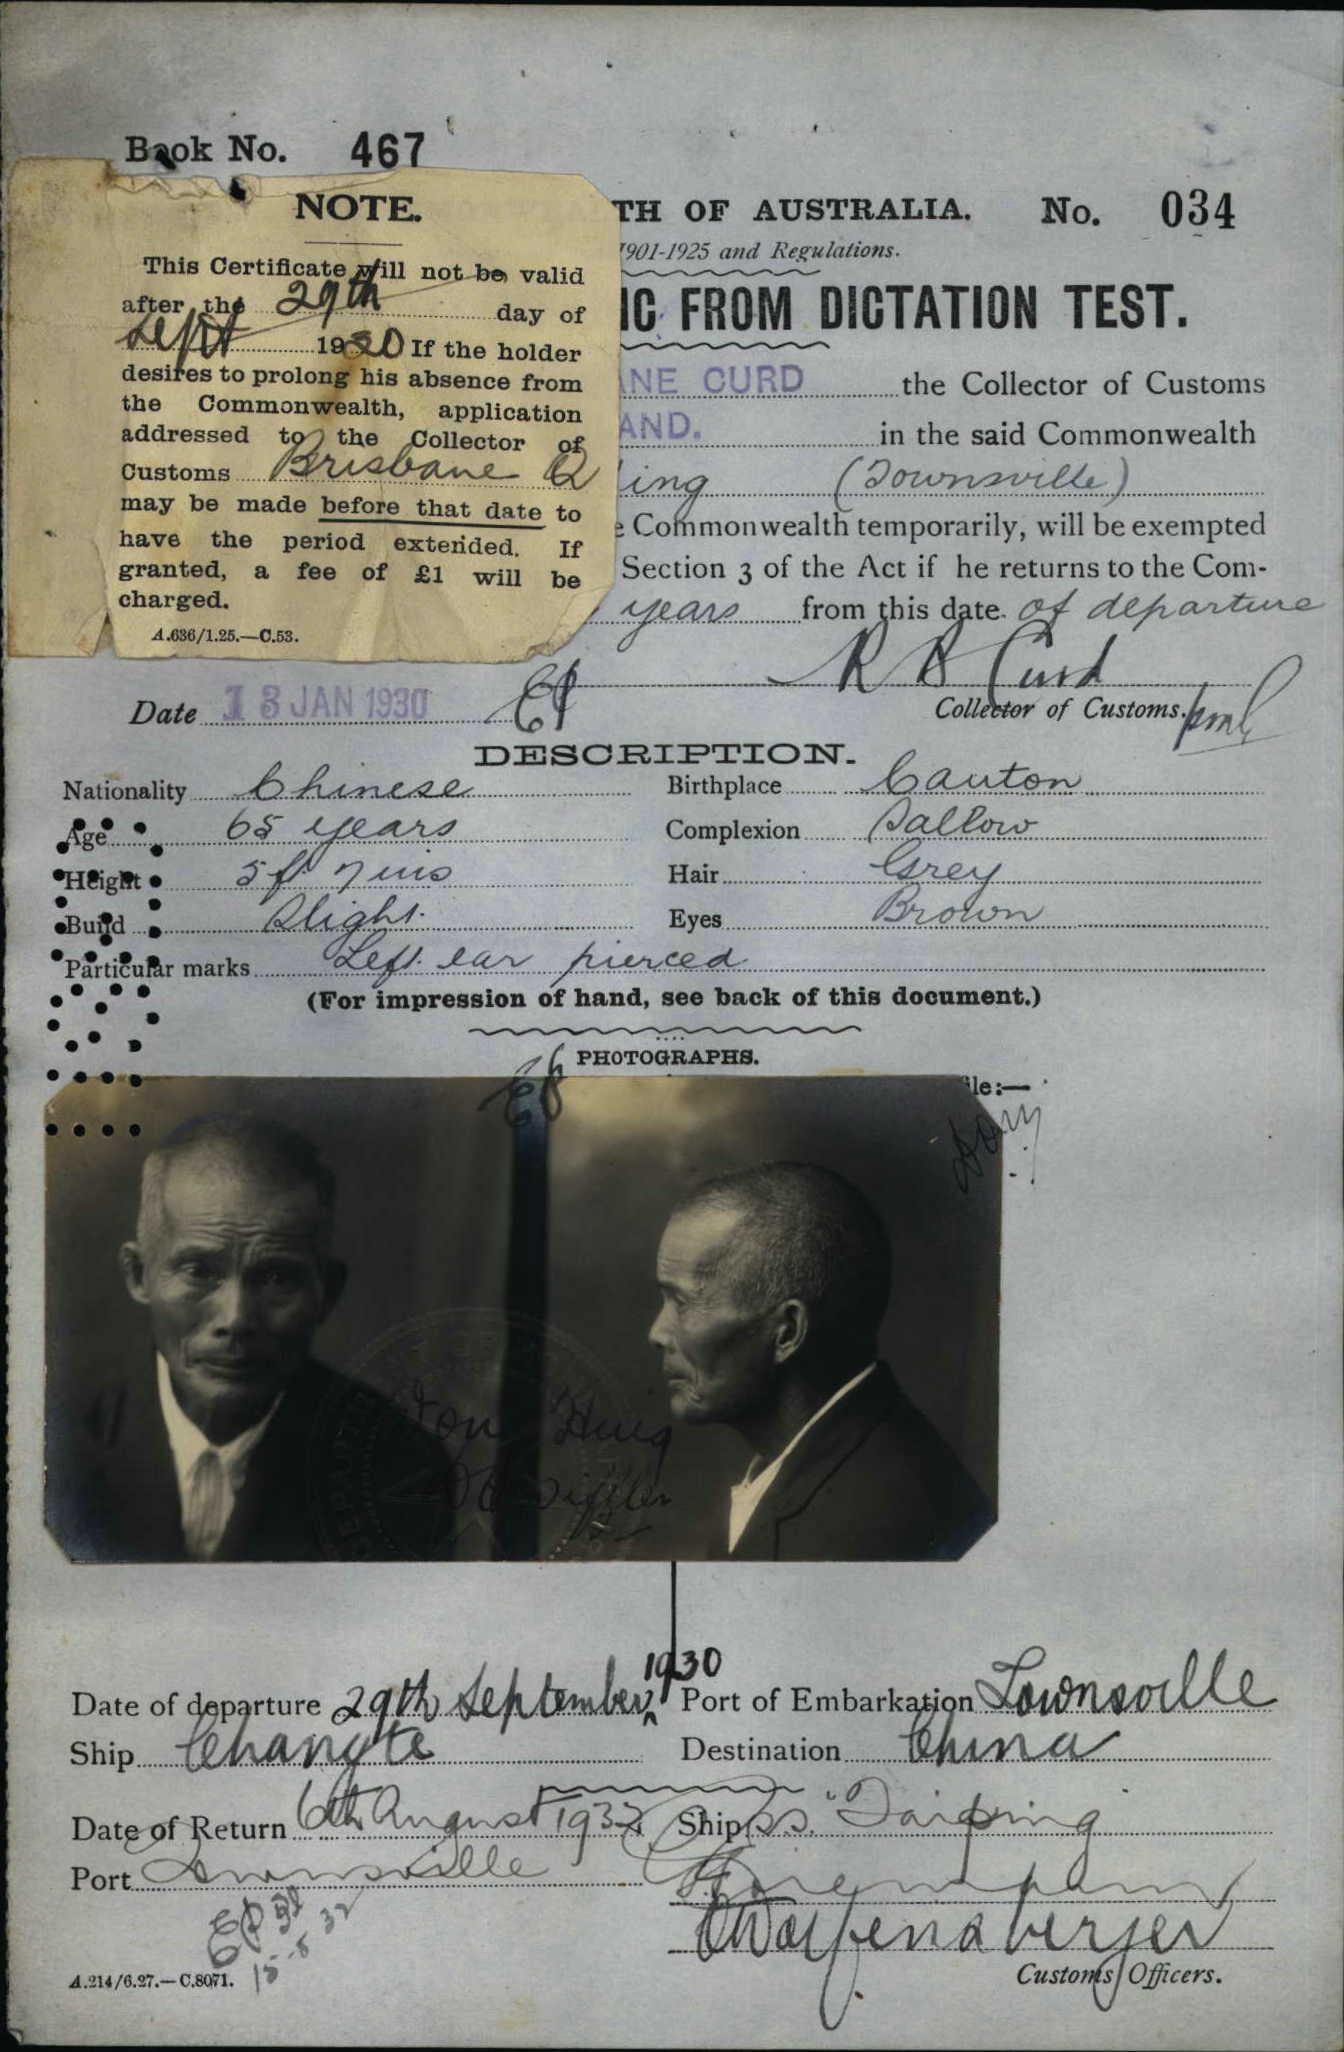 Book No. 467
NOTE.
This Certificate will not be valid
after the 29th day of
Sept 1930 If the holder
desires to prolong his absence from
the Commonwealth, application
addressed to the Collector of
Customs Brisbane Q
may be made before that date to
have the period extended. If
granted, a fee of £1 will be
charged.
A.636/1.25.—C.53.
TH OF AUSTRALIA. No. 034
1901-1925 and Regulations.
FROM DICTATION TEST.
ANE CURD the Collector of Customs
AND. in the said Commonwealth
ing (Townsville)
Commonwealth temporarily, will be exempted
Section 3 of the Act if he returns to the Com-
years from this date of departure
R B Curd
Date 13 JAN 1930
Collector of Customs.
DESCRIPTION.
Nationality Chinese Birthplace Canton
Age 65 years Complexion Sallow
Height 5 ft 7 ins Hair Grey
Build Slight. Eyes Brown
Particular marks Left ear pierced
(For impression of hand, see back of this document.)
PHOTOGRAPHS.
ile:—
Date of departure 29th September 1930 Port of Embarkation Townsville
Ship Changte Destination China
Date of Return 6th August 1932 Ship S.S. "Taiping"
Port Townsville
15-8-32
A.214/6.27.—C.8071.
Customs Officers.